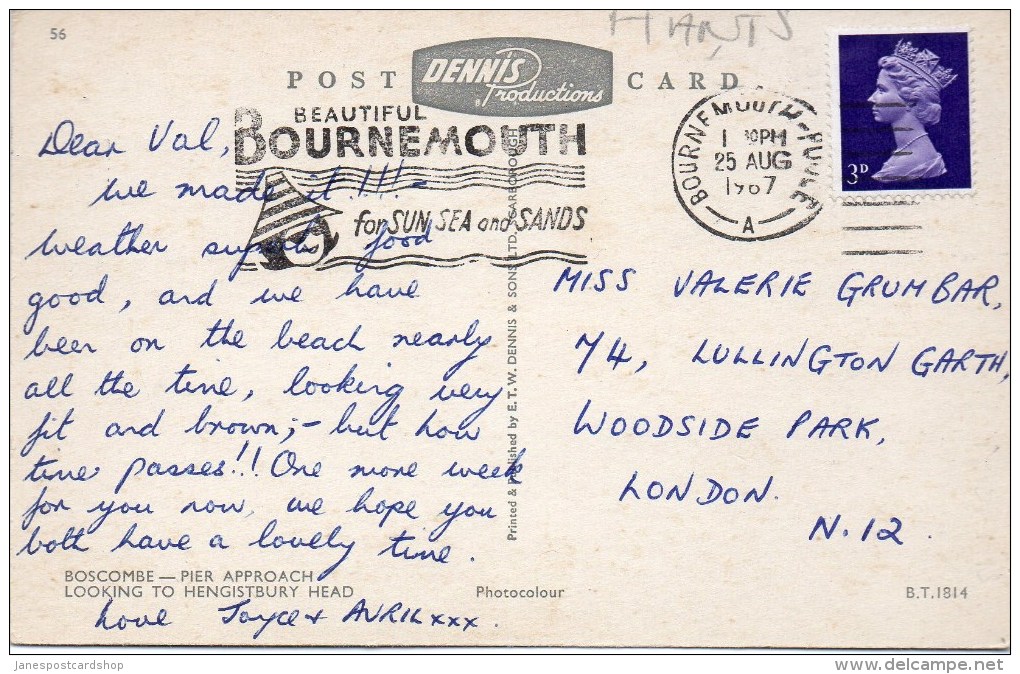 HANTS
56
POST CARD
DENNIS
Productions
BEAUTIFUL
BOURNEMOUTH
for SUN SEA and SANDS
BOURNEMOUTH-POOLE
1 30PM
25 AUG
1967
A
3D
Dear Val,
we made it!!!-
weather superb food
good, and we have
been on the beach nearly
all the time, looking very
fit and brown;- but how
time passes!! One more week
for you now, we hope you
both have a lovely time.
Love Joyce + AVRIL xxx.
MISS VALERIE GRUMBAR,
74, LULLINGTON GARTH,
WOODSIDE PARK,
LONDON.
N.12.
Printed & Published by E.T.W. DENNIS & SONS LTD. SCARBOROUGH
BOSCOMBE — PIER APPROACH
LOOKING TO HENGISTBURY HEAD
Photocolour
B.T.1814
Janespostcardshop
delcampe.net